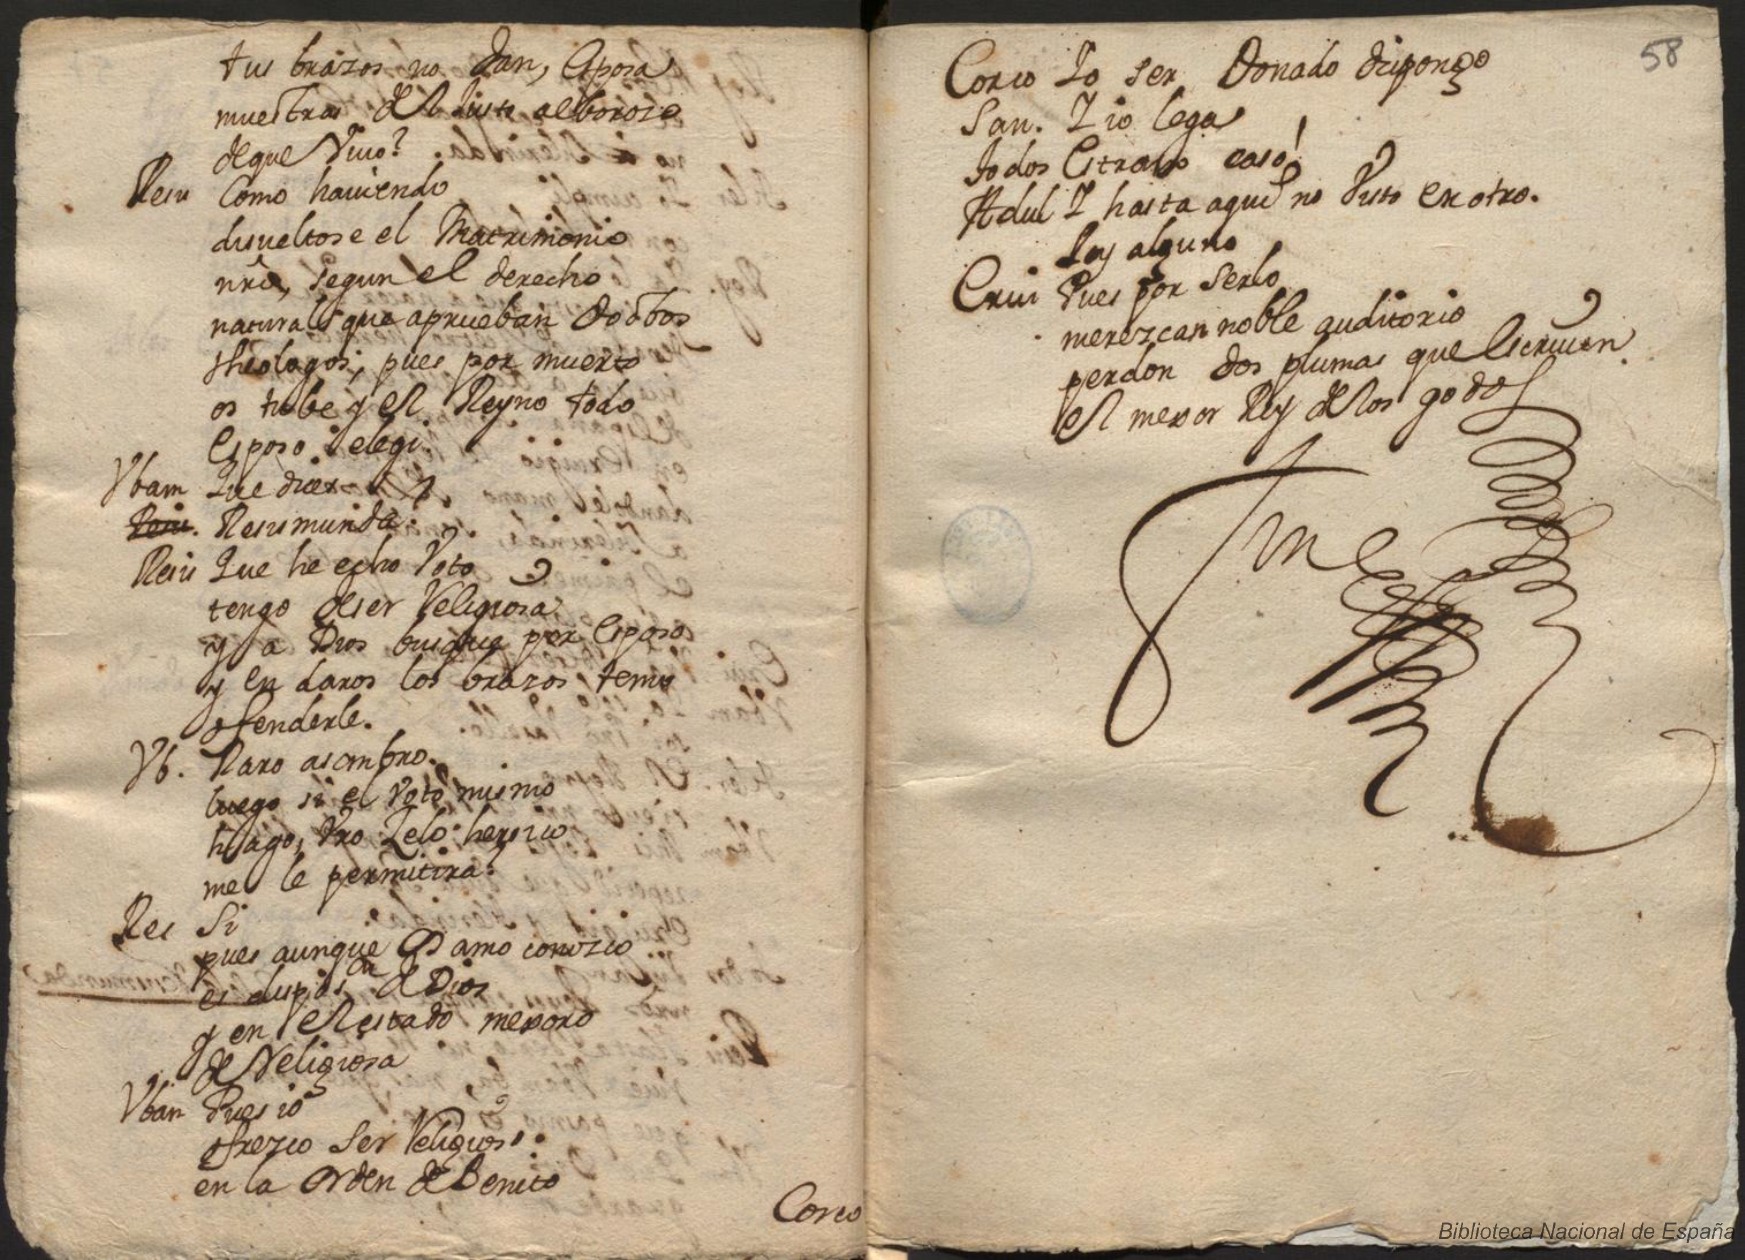 tus brazos no dan, esposa
muestras del justo alborozo
de que vivo?
Resu Como haviendo
disueltose el Matrimonio
nrô, segun el derecho
natural que aprueban doctos
theologos, pues por muerto
os tube y el Reyno todo
esposo elegi.
Vbam Que dices
Resu. Resismunda.
Resu Que he echo Voto
tengo de ser Religiosa
y a Dios busque por esposo
y en daros los brazos temo
ofenderle.
Vb. Raro asombro.
luego si el voto mismo
hago, vro Zelo heroico
me le permitira?
Res Si
pues aunque os amo conozco
es de Dios
y en el estado mexoro
de Religiosa
Vban Pues io
ofrezco ser Religioso
en la orden de Benito
Corco
58
Corco Io ser Donado dispongo
San. I io lega
todos Estraño caso!
Adul I hasta aqui no visto en otro.
Rey alguno
Ervi Pues por serlo
merezcan noble auditorio
perdon dos plumas que escriven
el mexor Rey de los godos
Biblioteca Nacional de España